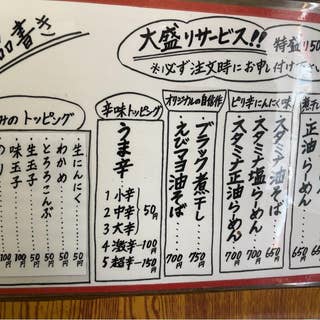 品書き
大盛りサービス!!
特盛り50
※必ず注文時にお申し付け下さい
煮干し
・正油らーめん 650円
ピリ辛にんにく味
・スタミナ油そば 650円
・スタミナ塩らーめん 700円
・スタミナ正油らーめん 700円
オリジナルの自信作
・ブラック煮干し 750円
・えびマヨ油そば 700円
辛味トッピング
うま辛
1 小辛
2 中辛 50円
3 大辛
4 激辛 100円
5 超辛 150円
みのトッピング
・生にんにく 50円
・わかめ 50円
・とろろこんぶ 50円
・生玉子 50円
・味玉子 100円
・のり 100円